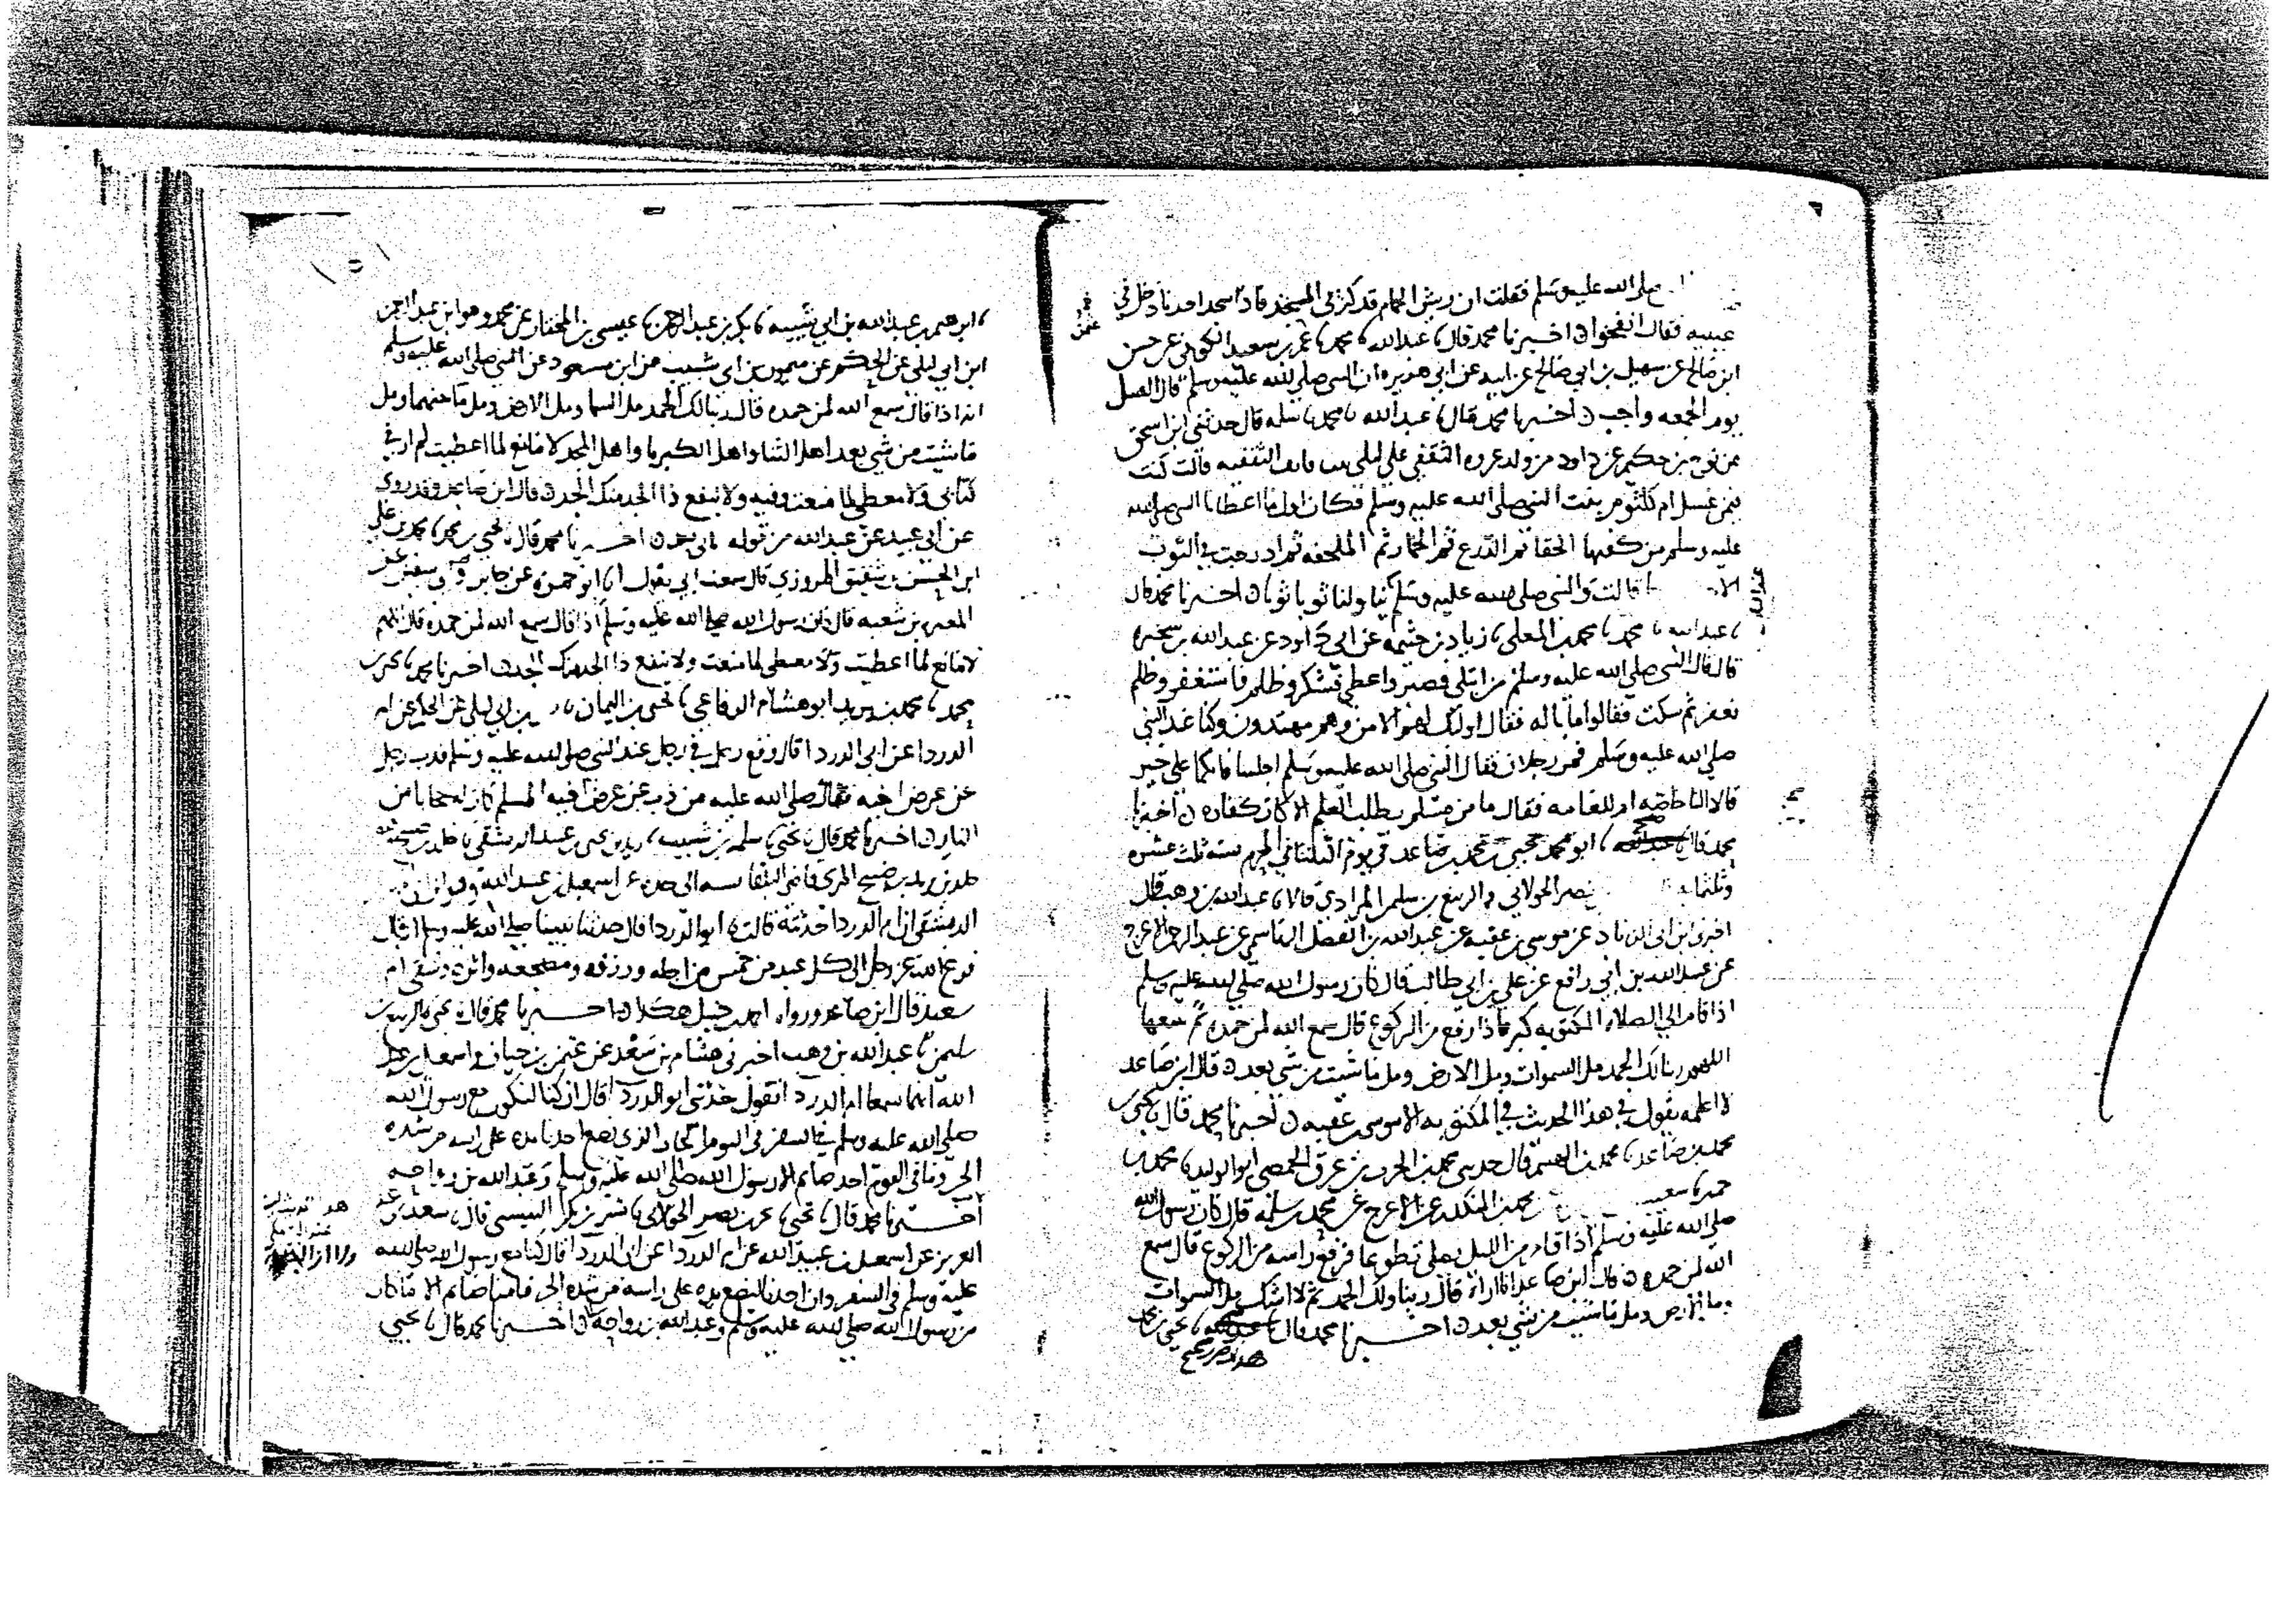 صلى الله عليه وسلم فقلت ان ريش الحمام قد كثر في المسجد فاذا سجد احدنا دخل في
عينيه فقال انفخوا ن اخبرنا محمد قال نا عبدالله نا محمد نا عمر بن سعيد الكوفي عن حسن
ابن صالح عن سهيل بن ابي صالح عن ابيه عن ابي هريرة ان النبي صلى الله عليه وسلم قال الغسل
يوم الجمعه واجب ن اخبرنا محمد قال نا عبدالله نا محمد نا سلمه قال حدثني ابن اسحق
عن نوح بن حكيم عن داود من ولد عروه الثقفي عن ليلى الثقفيه قالت كنت
فيمن غسل ام كلثوم بنت النبي صلى الله عليه وسلم فكان اول ما اعطانا النبي صلى الله
عليه وسلم من كفنها الحقا ثم الدرع ثم الخمار ثم الملحفه ثم ادرجت في الثوب
قالت والنبي صلى الله عليه وسلم يناولنا ثوبا ثوبا ن اخبرنا محمد قال
نا عبدالله نا محمد نا محمد بن المعلى نا زياد بن خيثمه عن ابي داود عن عبدالله بن سخبره
قال قال النبي صلى الله عليه وسلم من ابتلي فصبر واعطي فشكر وظلم فاستغفر وظلم
فغفر ثم سكت فقالوا ما باله فقال اولئك لهم الامن وهم مهتدون وكنا عند النبي
صلى الله عليه وسلم فمر رجلان فقال النبي صلى الله عليه وسلم اجلسا فانكما على خير
قالا النا خاصه ام للعامه فقال ما من مسلم يطلب العلم الا كان كفاره ن اخبرنا
محمد قال نا ابو محمد يحيى بن محمد بن صاعد في يوم الثلثا في المحرم سنه ثلث عشره
وثلثمايه نصر الخولاني والربيع بن سليمن المرادي قالا نا عبدالله بن وهب قال
اخبرني ابن ابي الزناد عن موسى بن عقبه عن عبدالله بن الفضل الهاشمي عن عبد الرحمن الاعرج
عن عبيدالله بن ابي رافع عن علي بن ابي طالب قال كان رسول الله صلى الله عليه وسلم
اذا قام الى الصلاه المكتوبه كبر فاذا رفع من الركوع قال سمع الله لمن حمده ثم يتبعها
اللهم ربنا لك الحمد مل السموات ومل الارض ومل ما شيت من شي بعد ن قال ابن صاعد
لا اعلمه يقول في هذا الحديث في المكتوبه الا موسى بن عقبه ن اخبرنا محمد قال نا يحيى بن
محمد بن صاعد نا محمد بن قال حدثني محمد بن عرق الحمصي ابو الوليد نا محمد بن
حمير نا سعيد محمد بن المنكدر عن الاعرج عن محمد بن مسلمه قال كان رسول الله
صلى الله عليه وسلم اذا قام من الليل يصلي تطوعا فرفع راسه من الركوع قال سمع
الله لمن حمده ن قال ابن صاعد انا اراه قال ربنا ولك الحمد ثم لا اشك مل السموات
ومل الارض ومل ما شيت من شي بعد ن اخبرنا محمد قال نا يحيى بن محمد
نا ابرهيم بن عبدالله بن ابي شيبه نا بكر بن عبد الرحمن نا عيسى بن المختار عن محمد وهو ابن عبد الرحمن
ابن ابي ليلى عن الحكم عن ميمون بن ابي شبيب عن ابن مسعود عن النبي صلى الله عليه وسلم
انه اذا قال سمع الله لمن حمده قال ربنا لك الحمد مل السما ومل الارض ومل ما بينهما ومل
ما شيت من شي بعد اهل الثنا واهل الكبريا واهل المجد لا مانع لما اعطيت لم ار في
كتابي ولا معطي لما منعت وفيه ولا ينفع ذا الجد منك الجد ن قال ابن صاعد وقد روي
عن ابي عبيده عن عبدالله من قوله ن اخبرنا محمد قال نا يحيى بن محمد نا محمد بن علي
ابن الحسن بن شقيق المروزي قال سمعت ابي يقول انا ابو حمزه عن جابر عن
المغيره بن شعبه قال كان رسول الله صلى الله عليه وسلم اذا قال سمع الله لمن حمده قال اللهم
لا مانع لما اعطيت ولا معطي لما منعت ولا ينفع ذا الجد منك الجد ن اخبرنا محمد نا يحيى بن
محمد نا محمد بن يزيد ابو هشام الرفاعي نا يحيى بن اليمان ابن ابي ليلى عن الحكم عن ام
الدردا عن ابي الدردا قال وقع رجل في رجل عند النبي صلى الله عليه وسلم فذب رجل
عن عرض اخيه فقال صلى الله عليه من ذب عن عرض اخيه المسلم كان له حجابا من
النار ن اخبرنا محمد قال نا يحيى نا سلمه بن شبيب نا زيد بن يحيى بن عبيد الدمشقي نا خلد بن صبيح نا
خلد بن يزيد بن صبيح المري قاضي البلقا عن اسمعيل بن عبيد الله
الدمشقي ان ام الدردا حدثته قالت نا ابو الدردا قال حدثنا نبينا صلى الله عليه وسلم قال
فرغ الله عز وجل الى كل عبد من خمس من اجله ورزقه ومضجعه واثره وشقي ام
سعيد قال ابن صاعد ورواه احمد بن حنبل هكذا ن اخبرنا محمد قال نا يحيى نا الربيع بن
سليمن نا عبدالله بن وهب اخبرني هشام بن سعد عن عثمن بن حيان واسمعيل بن عبيد
الله انهما سمعا ام الدردا تقول حدثني ابو الدردا قال ان كنا لنكون مع رسول الله
صلى الله عليه وسلم في السفر في اليوم الحار الذي يضع احدنا يده على راسه من شده
الحر وما في القوم احد صائم الا رسول الله صلى الله عليه وسلم وعبدالله بن رواحه
اخبرنا محمد قال نا يحيى نا بحر بن نصر الخولاني نا بشر بن بكر التنيسي قال نا سعيد بن عبد
العزيز عن اسمعيل بن عبيدالله عن ام الدردا عن ابي الدردا قال كنا مع رسول الله صلى الله
عليه وسلم في السفر وان احدنا ليضع يده على راسه من شده الحر فما منا صائم الا ما كان
من رسول الله صلى الله عليه وسلم وعبدالله بن رواحه ن اخبرنا محمد قال نا يحيى